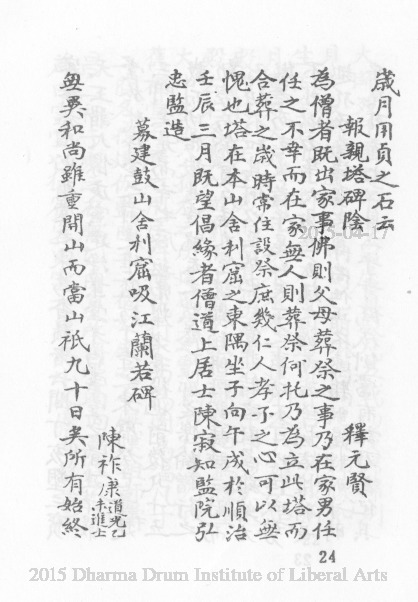 歲月用貞之石云
報親塔碑陰　釋元賢
為僧者既出家事佛則父母葬祭之事乃在家男任
任之不幸而在家無人則葬祭何托乃為立此塔而
合葬之歲時常住設祭庶幾仁人孝子之心可以無
愧也塔在本山舍利窟之東隅坐子向午成於順治
壬辰三月既望倡緣者僧道上居士陳寂知監院弘
忠監造
募建鼓山舍利窟吸江蘭若碑
陳祚康道光乙未進士
無異和尚雖重開山而當山祇九十日矣所有始終
24
2015-04-17
2015 Dharma Drum Institute of Liberal Arts